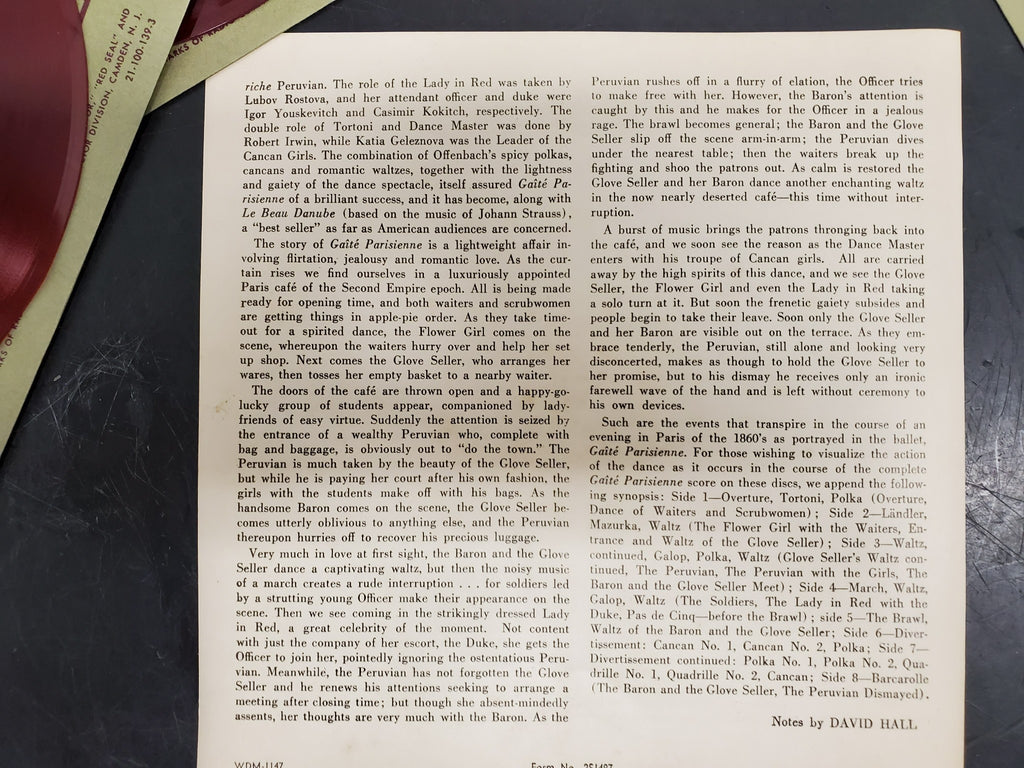 "RED SEAL" AND
DIVISION, CAMDEN, N. J.
21-100-139-3
riche Peruvian. The role of the Lady in Red was taken by
Lubov Rostova, and her attendant officer and duke were
Igor Youskevitch and Casimir Kokitch, respectively. The
double role of Tortoni and Dance Master was done by
Robert Irwin, while Katia Geleznova was the Leader of the
Cancan Girls. The combination of Offenbach's spicy polkas,
cancans and romantic waltzes, together with the lightness
and gaiety of the dance spectacle, itself assured Gaîté Pa-
risienne of a brilliant success, and it has become, along with
Le Beau Danube (based on the music of Johann Strauss),
a "best seller" as far as American audiences are concerned.
The story of Gaîté Parisienne is a lightweight affair in-
volving flirtation, jealousy and romantic love. As the cur-
tain rises we find ourselves in a luxuriously appointed
Paris café of the Second Empire epoch. All is being made
ready for opening time, and both waiters and scrubwomen
are getting things in apple-pie order. As they take time-
out for a spirited dance, the Flower Girl comes on the
scene, whereupon the waiters hurry over and help her set
up shop. Next comes the Glove Seller, who arranges her
wares, then tosses her empty basket to a nearby waiter.
The doors of the café are thrown open and a happy-go-
lucky group of students appear, companioned by lady-
friends of easy virtue. Suddenly the attention is seized by
the entrance of a wealthy Peruvian who, complete with
bag and baggage, is obviously out to "do the town." The
Peruvian is much taken by the beauty of the Glove Seller,
but while he is paying her court after his own fashion, the
girls with the students make off with his bags. As the
handsome Baron comes on the scene, the Glove Seller be-
comes utterly oblivious to anything else, and the Peruvian
thereupon hurries off to recover his precious luggage.
Very much in love at first sight, the Baron and the Glove
Seller dance a captivating waltz, but then the noisy music
of a march creates a rude interruption . . . for soldiers led
by a strutting young Officer make their appearance on the
scene. Then we see coming in the strikingly dressed Lady
in Red, a great celebrity of the moment. Not content
with just the company of her escort, the Duke, she gets the
Officer to join her, pointedly ignoring the ostentatious Peru-
vian. Meanwhile, the Peruvian has not forgotten the Glove
Seller and he renews his attentions seeking to arrange a
meeting after closing time; but though she absent-mindedly
assents, her thoughts are very much with the Baron. As the
Peruvian rushes off in a flurry of elation, the Officer tries
to make free with her. However, the Baron's attention is
caught by this and he makes for the Officer in a jealous
rage. The brawl becomes general; the Baron and the Glove
Seller slip off the scene arm-in-arm; the Peruvian dives
under the nearest table; then the waiters break up the
fighting and shoo the patrons out. As calm is restored the
Glove Seller and her Baron dance another enchanting waltz
in the now nearly deserted café—this time without inter-
ruption.
A burst of music brings the patrons thronging back into
the café, and we soon see the reason as the Dance Master
enters with his troupe of Cancan girls. All are carried
away by the high spirits of this dance, and we see the Glove
Seller, the Flower Girl and even the Lady in Red taking
a solo turn at it. But soon the frenetic gaiety subsides and
people begin to take their leave. Soon only the Glove Seller
and her Baron are visible out on the terrace. As they em-
brace tenderly, the Peruvian, still alone and looking very
disconcerted, makes as though to hold the Glove Seller to
her promise, but to his dismay he receives only an ironic
farewell wave of the hand and is left without ceremony to
his own devices.
Such are the events that transpire in the course of an
evening in Paris of the 1860's as portrayed in the ballet,
Gaîté Parisienne. For those wishing to visualize the action
of the dance as it occurs in the course of the complete
Gaîté Parisienne score on these discs, we append the follow-
ing synopsis: Side 1—Overture, Tortoni, Polka (Overture,
Dance of Waiters and Scrubwomen); Side 2—Ländler,
Mazurka, Waltz (The Flower Girl with the Waiters, En-
trance and Waltz of the Glove Seller); Side 3—Waltz,
continued, Galop, Polka, Waltz (Glove Seller's Waltz con-
tinued, The Peruvian, The Peruvian with the Girls, The
Baron and the Glove Seller Meet); Side 4—March, Waltz,
Galop, Waltz (The Soldiers, The Lady in Red with the
Duke, Pas de Cinq—before the Brawl); side 5—The Brawl,
Waltz of the Baron and the Glove Seller; Side 6—Diver-
tissement: Cancan No. 1, Cancan No. 2, Polka; Side 7—
Divertissement continued: Polka No. 1, Polka No. 2, Qua-
drille No. 1, Quadrille No. 2, Cancan; Side 8—Barcarolle
(The Baron and the Glove Seller, The Peruvian Dismayed).
Notes by DAVID HALL
WDM-1147
Form No. 2S1497